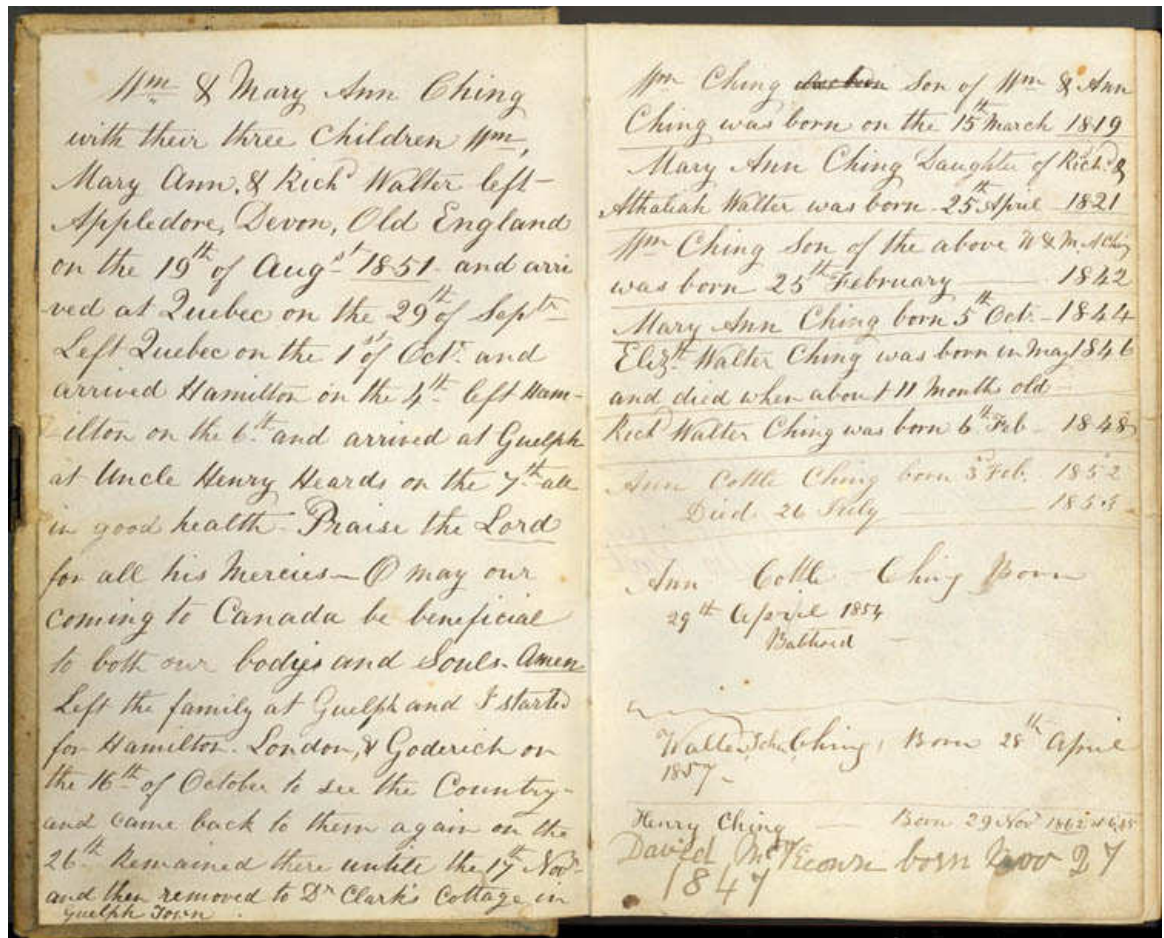 Wm & Mary Ann Ching
with their three Children Wm,
Mary Ann, & Richd Walter left
Appledore, Devon, Old England
on the 19th of Augst 1851 and arri
ved at Quebec on the 29th of Septr
Left Quebec on the 1st of Octr and
arrived Hamilton on the 4th left Ham-
ilton on the 6th and arrived at Guelph
at Uncle Henry Heards on the 7th all
in good health - Praise the Lord
for all his Mercies - O may our
coming to Canada be beneficial
to both our bodies and Souls - Amen
Left the family at Guelph and I started
for Hamilton. London, & Goderich on
the 16th of October to see the Country -
and came back to them again on the
26th Remained there untill the 17th Novr
and then removed to Dr Clark's Cottage in
Guelph Town
Wm Ching Son of Wm & Ann
Ching was born on the 15th March 1819
Mary Ann Ching Daughter of Richd &
Athaliah Walter was born 25th April 1821
Wm Ching Son of the above W & M. A Ching
was born 25th February 1842
Mary Ann Ching born 5th Oct. - 1844
Elizth Walter Ching was born in May 1846
and died when about 11 Months old
Richd Walter Ching was born 6th Feb 1848
Ann Cottle Ching born 3d Feb. 1852
Died 26 July 1853
Ann Cottle Ching Born
29th April 1854
Walter John Ching, Born 28th April
1857 -
Henry Ching - Born 29 Novr 1862
David born Nov 27
1847